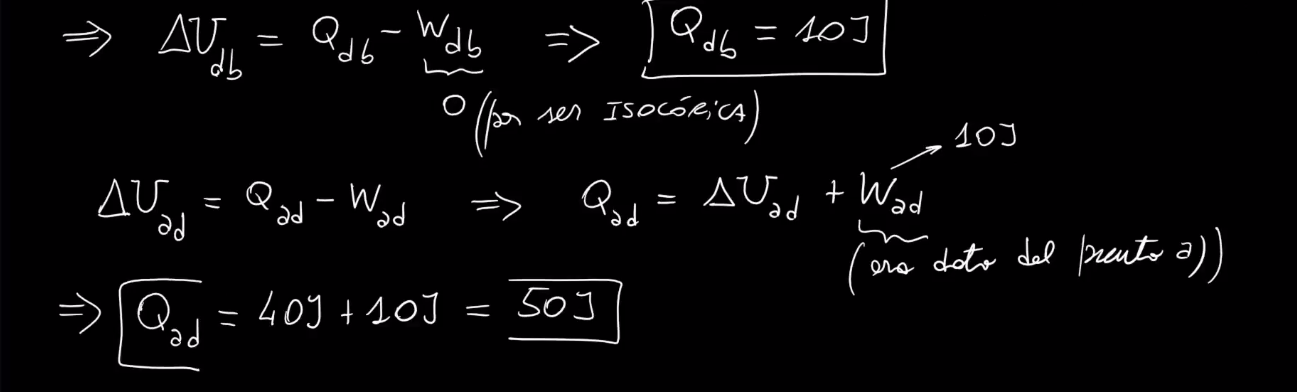 ⇒ ΔU_db = Q_db - W_db ⇒ Q_db = 10J
0 (por ser ISOCÓRICA)
10J
ΔU_ad = Q_ad - W_ad ⇒ Q_ad = ΔU_ad + W_ad
(era dato del punto a))
⇒ Q_ad = 40J + 10J = 50J